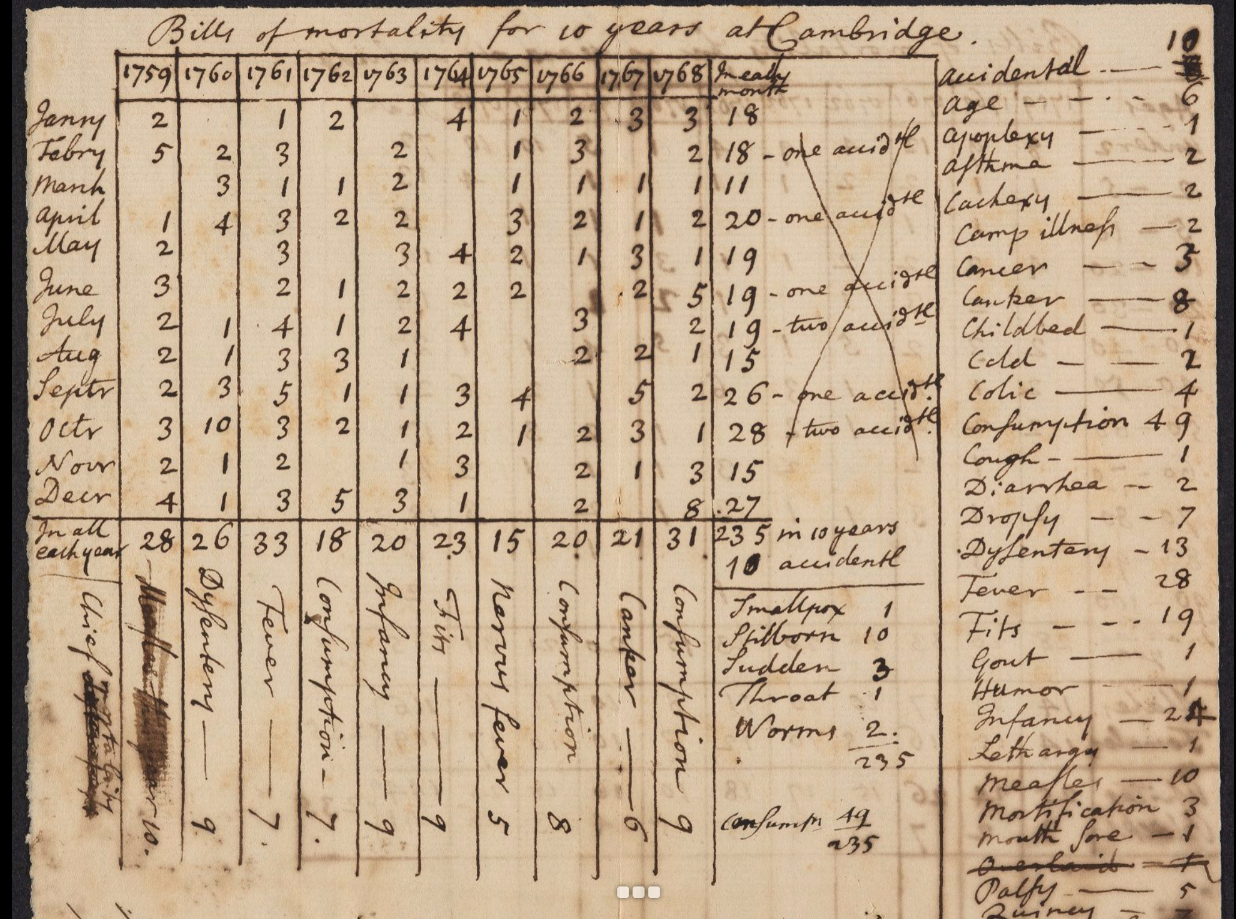 Bills of mortality for 10 years at Cambridge.
1759 1760 1761 1762 1763 1764 1765 1766 1767 1768 In each month
Janry 2 1 2 4 1 2 3 3 18
Febry 5 2 3 2 1 3 2 18 - one accidtl
March 3 1 1 2 1 1 1 1 11
April 1 4 3 2 2 3 2 1 2 20 - one accidtl
May 2 3 3 4 2 1 3 1 19
June 3 2 1 2 2 2 2 5 19 - one accidtl
July 2 1 4 1 2 4 3 2 19 - two accidtl
Aug 2 1 3 3 1 2 2 1 15
Septr 2 3 5 1 1 3 4 5 2 26 - one accidtl.
Octr 3 10 3 2 1 2 1 2 3 1 28 - two accidtl.
Novr 2 1 2 1 3 2 1 3 15
Decr 4 1 3 5 3 1 2 8 27
In all each year 28 26 33 18 20 23 15 20 21 31 235 in 10 years
10 accidentl
Chief mortality
10.
Dysentery — 9.
Fever — 7.
Consumption - 7.
Infancy — 9
Fits — 9
Nervus fever 5
Consumption 8
Canker — 6
Consumption 9
Smallpox 1
Stilborn 10
Sudden 3
Throat 1
Worms 2.
235
Consumpn 49
235
accidental - — 10
Age - - - . - 6
Apoplexy — 1
Asthma — 2
Cachexy — 2
Camp illness — 2
Cancer — - 3
Canker — 8
Childbed — 1
Cold — - 2
Colic — 4
Consumption 49
Cough - — 1
Diarrhea — 2
Dropsy - - 7
Dysentery - 13
Fever - - 28
Fits - - - 19
Gout — 1
Humor — 1
Infancy — 24
Lethargy — 1
Measles — 10
Mortification 3
Mouth sore - 1
Overlaid - 1
Palsy — 5
Quinsey